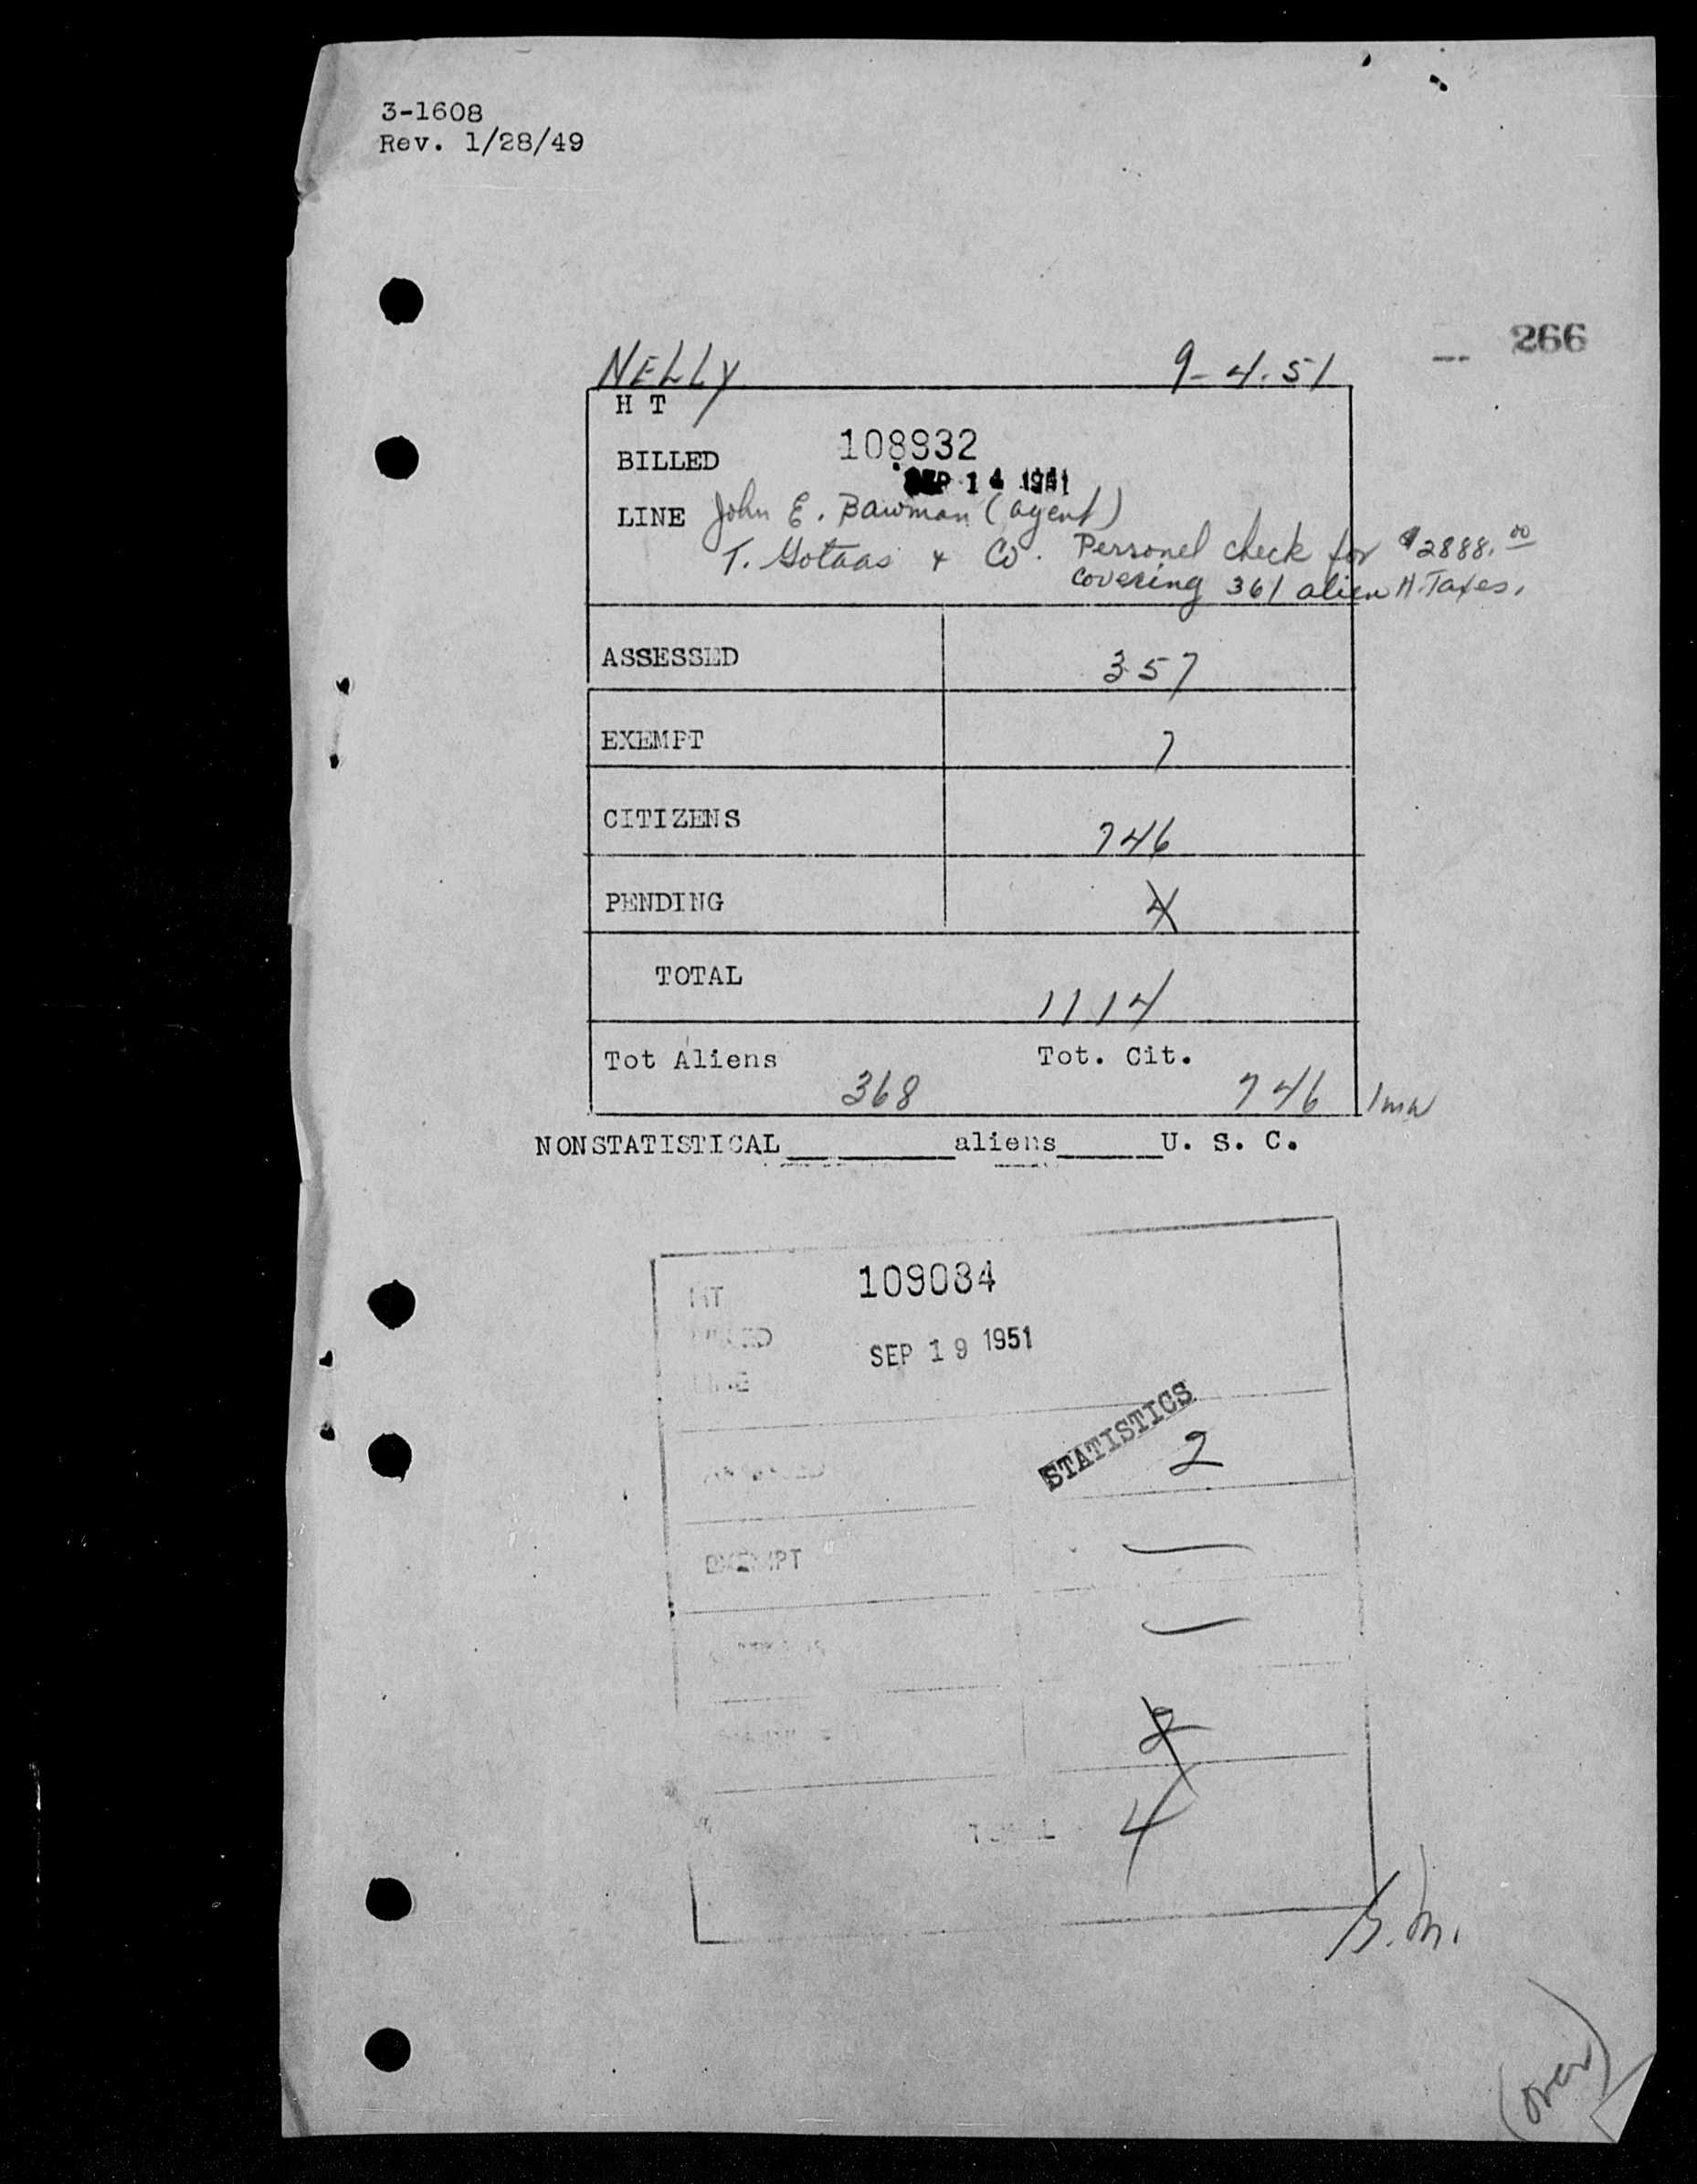 3-1608
Rev. 1/28/49
266
NELLY 9-4-51
H T
BILLED 108932
SEP 14 1951
LINE John E. Bawman (agent)
T. Gotaas & Co. Personel check for $2888.00
covering 361 alien H.Taxes.
ASSESSED 357
EXEMPT 7
CITIZENS 746
PENDING 4
TOTAL 1114
Tot Aliens 368 Tot. Cit. 746 1mw
NONSTATISTICAL aliens U. S. C.
HT 109084
SEP 19 1951
LINE
STATISTICS
2
EXEMPT —
—
2
TOTAL 4
(over)